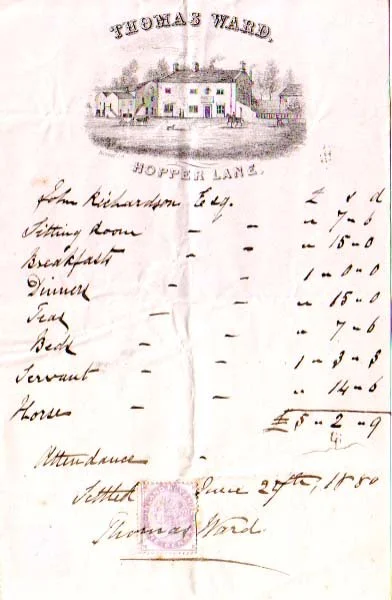 THOMAS WARD,
HOPPER LANE.
John Richardson Esq. £ s d
Sitting Room - - " 7 - 6
Breakfasts - " " 15 - 0
Dinners - - 1 - 0 - 0
Teas - - " 15 - 0
Beds - - " 7 - 6
Servant - - 1 - 3 - 3
Horse - - " 14 - 6
£5 - 2 - 9
Attendance -
Settled June 27th, 1880
Thomas Ward